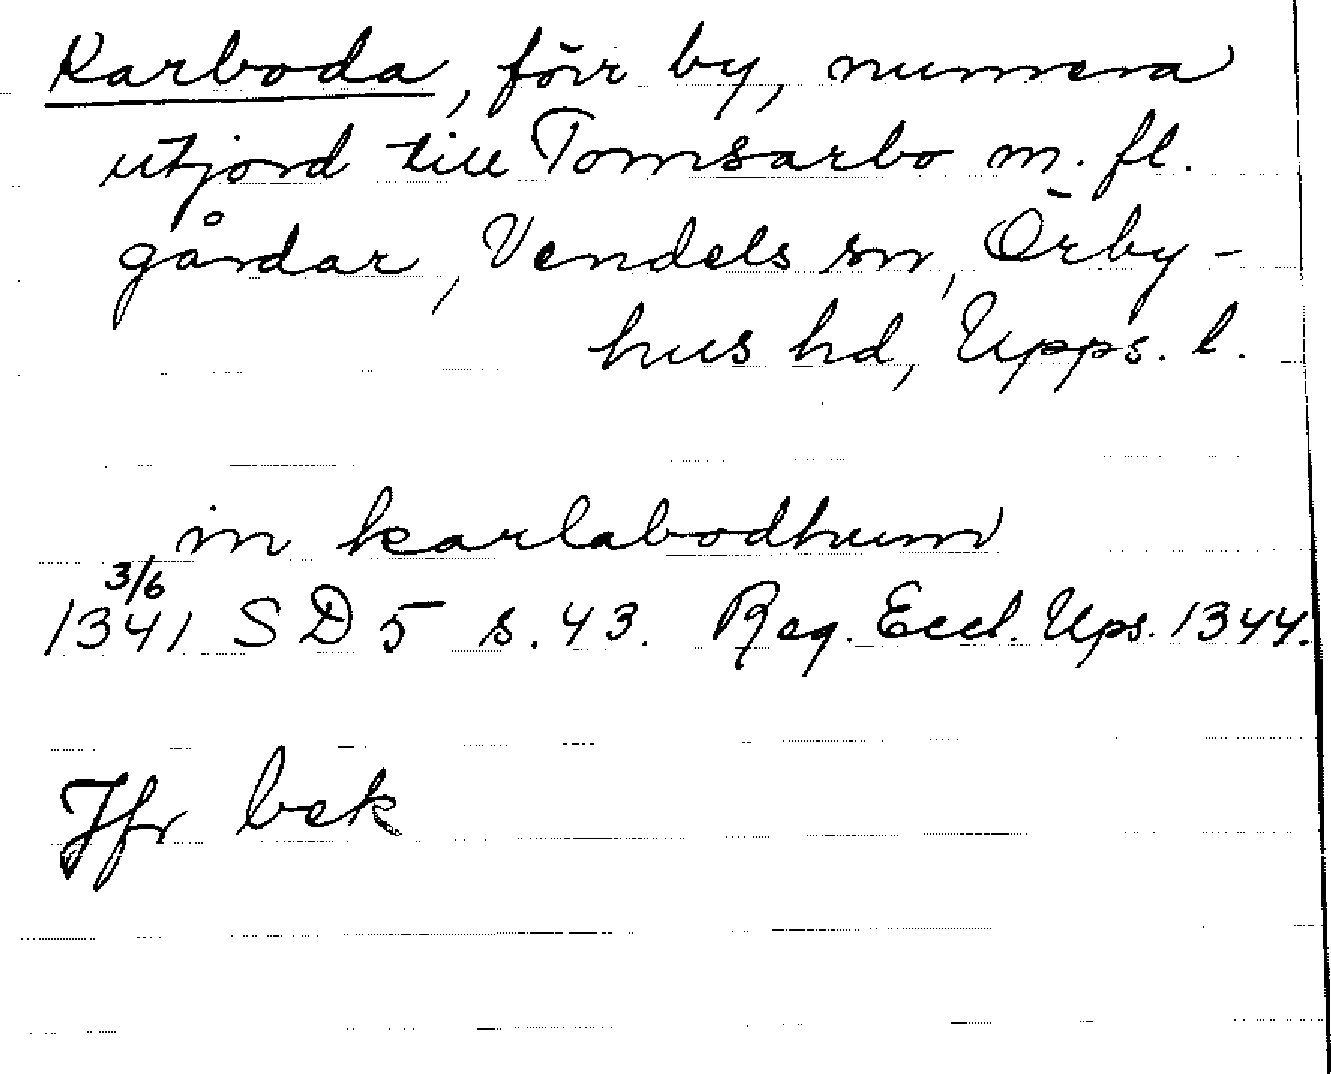 Karboda, förr by, numera
utjord till Tomsarbo m. fl.
gårdar, Vendels sn, Örby-
hus hd, Upps. l.
in karlabodhum
3/6
1341 SD 5 s. 43. Reg. Eccl. Ups. 1344.
Jfr bek